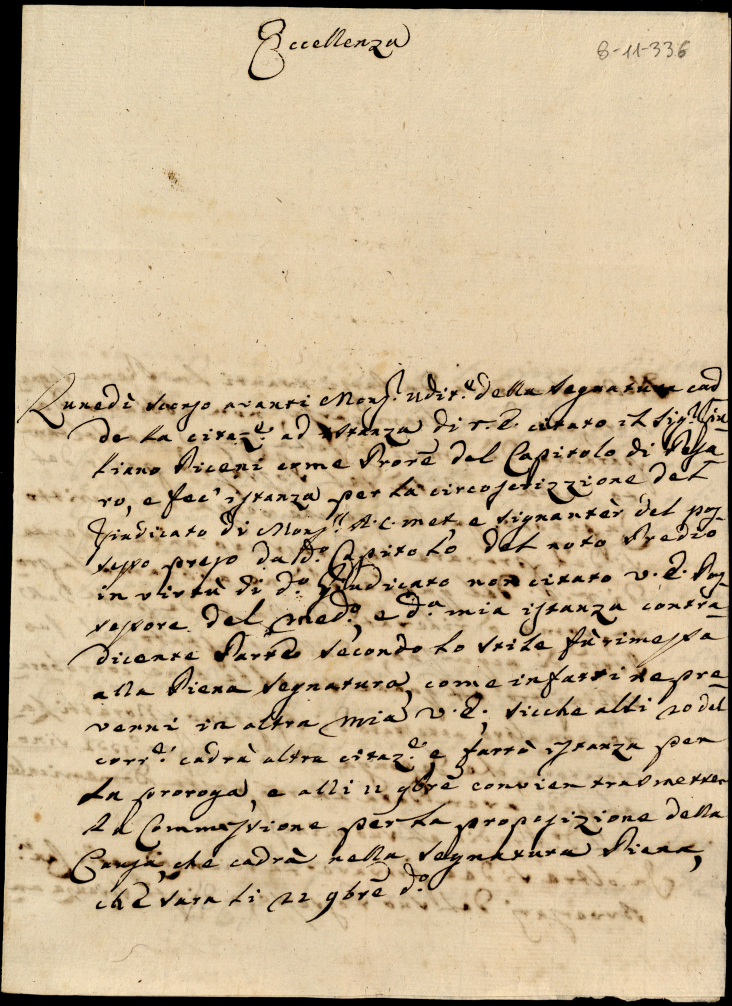 Eccellenza
8-11-336
Lunedì scorso avanti Mons.r Udit.e della Segnatura cad
de la citaz.e ad istanza di V. E. citato il Sig.r
tiano Piceni come Prore del Capitolo di Pesa
ro, e fec' istanza per la circoscrizzione del
Giudicato di Mons.r A. C. met, e signantèr del pos-
sesso preso da d.o Capitolo del noto Predio
in virtù di d.o Giudicato non citato V. E. Pos-
sessore del med.o, e d.a mia istanza contra-
dicente Parte secondo lo stile fù rimessa
alla Piena Segnatura, come infatti ne pre-
venni in altra mia V. E., sicche alli 20 del
corr.e cadrà altra citaz.e, e farrà istanza per
la proroga, e alli 11 9bre convien trasmetter
la Commissione per la proposizione della
Causa, che cadrà nella Segnatura Piena,
che sara li 22 9bre d.o